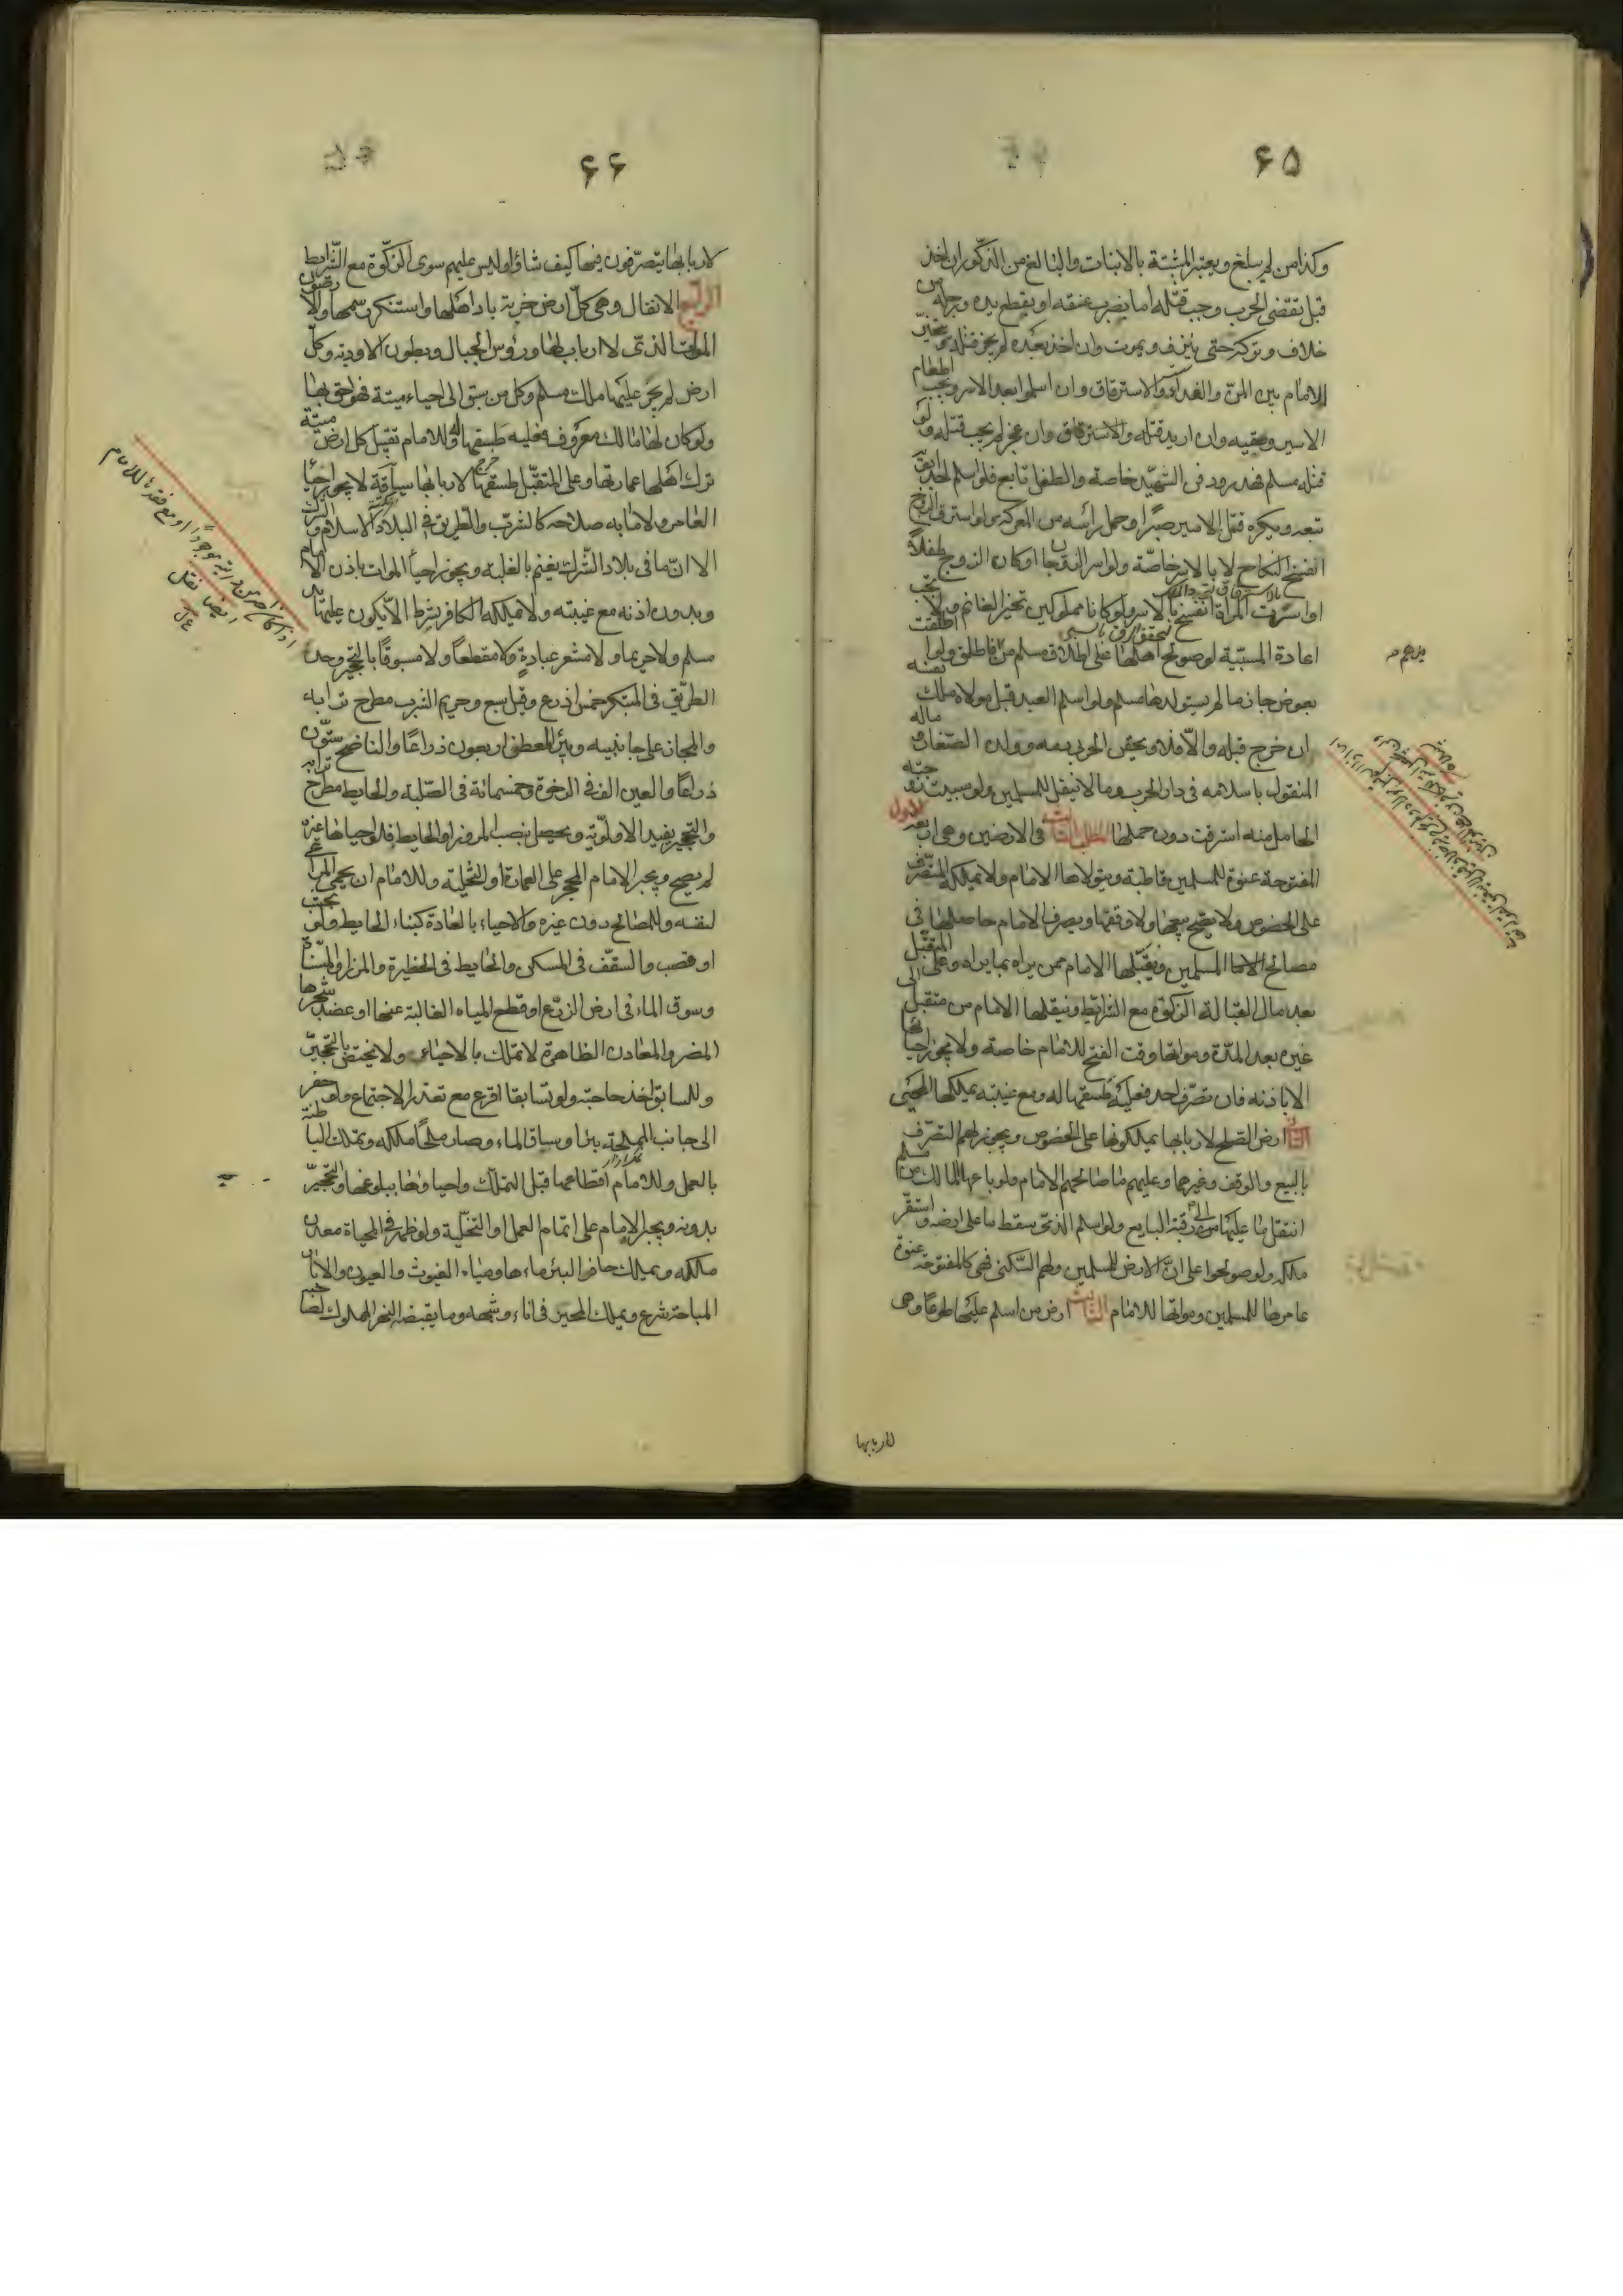 ٦٥
وكذا من لم يبلغ ويعتبر المشتبه بالانبات والبالغ من الذكور ان اخذ
قبل تقضى الحرب وجب قتله اما بضرب عنقه او بقطع يده ورجله من
خلاف وتركه حتى ينزف ويموت وان اخذ بعده لم يجز قتله ويتخير
الامام بين المن والفداء والاسترقاق وان اسلموا بعد الاسر ويجب اطعام
الاسير وسقيه وان اريد قتله والاسترقاق وان عجز لم يجب قتله ولو
قتله مسلم فهدر ودفن الشهيد خاصة والطفل تابع فلو اسلم احد ابويه
تبعه ويكره قتل الاسير صبرا وحمل رأسه من المعركة ولو استرق الزوج
انفسخ النكاح لا بالاسر خاصة ولو اسر الزوجان او كان الزوج طفلا
او اسرت المرأة انفسخ بالاسر ولو كانا مملوكين تخير الغانم ولا يجب
اعادة المسبية لو صولح اهلها على اطلاق مسلم من فاطلق ولو اطلقت
بعوض جاز ما لم يستولدها مسلم ولو اسلم العبد قبل مولاه ملك نفسه
ان خرج قبله والا فلا ويحقن الحربى دمه وولده الصغار وماله
المنقول باسلامه فى دار الحرب وما لا ينقل للمسلمين ولو سبيت زوجته
الحامل منه استرقت دون حملها المطلب الثالث فى الارضين وهى اربعة الاول
المفتوحة عنوة للمسلمين قاطبة ويتولاها الامام ولا يملكها المتصرف
على الخصوص ولا يصح بيعها ولا وقفها ويصرف الامام حاصلها فى
مصالح المسلمين ويقبلها الامام ممن يراه بما يراه وعلى المتقبل
بعد مال القبالة الزكوة مع الشرائط وينقلها الامام من متقبل الى
غيره بعد المدة ومواتها وقت الفتح للامام خاصة ولا يجوز احياؤها
الا باذنه فان تصرف احد فعليه طسقها له ومع غيبته يملكها المحيى
الثانى ارض الصلح لاربابها يملكونها على الخصوص ويجوز لهم التصرف
بالبيع والوقف وغيرهما وعليهم ما صالحهم الامام ولو باعها المالك من مسلم
انتقل ما عليها الى رقبة البايع ولو اسلم الذمى سقط ما على ارضه واستقر
ملكه ولو صولحوا على ان الارض للمسلمين ولهم السكنى فهى كالمفتوحة عنوة
عامرها للمسلمين ومواتها للامام الثالث ارض من اسلم عليها طوعا وهى
لاربابها
٦٦
لاربابها يتصرفون فيها كيف شاؤا وليس عليهم سوى الزكوة مع الشرايط
الرابع الانفال وهى كل ارض خربة باد اهلها واستنكر رسمها والارضون
الموات الذى لا ارباب لها ورؤس الجبال وبطون الاودية وكل
ارض لم يجر عليها ملك مسلم وكل من سبق الى احياء ميتة فهو احق بها
ولو كان لها مالك معروف فعليه طسقها له وللامام تقبيل كل ارض ميتة
ترك اهلها عمارتها وعلى المتقبل طسقها لاربابها ساقة لا يجوز احياء
العامر ولا ما به صلاحه كالشرب والطريق فى البلاد الاسلام والشرك
الا ان ما فى بلاد الشرك يغنم بالغلبة ويجوز احياء الموات باذن الامام
وبدون اذنه مع غيبته ولا يملكه الكافر بشرط الا يكون عليها يد
مسلم ولا حريما ولا مشعر عبادة ولا مقطعا ولا مسبوقا بالتحجير وحد
الطريق فى المبتكر خمس اذرع وقيل سبع وحريم الشرب مطرح ترابه
والمجاز على جانبيه وبئر المعطن اربعون ذراعا والناضح ستون
ذراعا والعين الف فى الرخوة وخمسمائة فى الصلبة والحايط مطرح ترابه
والتحجير يفيد الاولوية ويحصل بنصب المروز او الحايط فلو احياها غيره
لم يصح ويجبر الامام المحجر على العمارة او التخلية وللامام ان يحمى المرعى
لنفسه وللمصالح دون غيره والاحياء بالعادة كبناء الحايط ولو بخشب
او قصب والسقف فى المسكن والحايط فى الحظيرة والمرز او المسناة
وسوق الماء فى ارض الزرع او قطع المياه الغالبة عنها او عضد شجرها
المضر والمعادن الظاهرة لا تملك بالاحياء ولا يختص بالتحجير
وللسابق اخذ حاجته ولو تسابقا اقرع مع تعذر الاجتماع ولو حفر
الى جانب المملحة بئرا وساق الماء وصار ملحا ملكه وتملك الباطنة
بالعمل وللامام اقطاعها قبل التملك واحياؤها ببلوغها والتحجير
بدونه ويجبر الامام على اتمام العمل او التخلية ولو ظهر فى المحياة معدن
ملكه ويملك حافر البئر ماءها ومياه الغيوث والعيون والابار
المباحة شرع ويملك المحيز فى اناء وشبهه وما يقبضه النهر المملوك لصاحبه